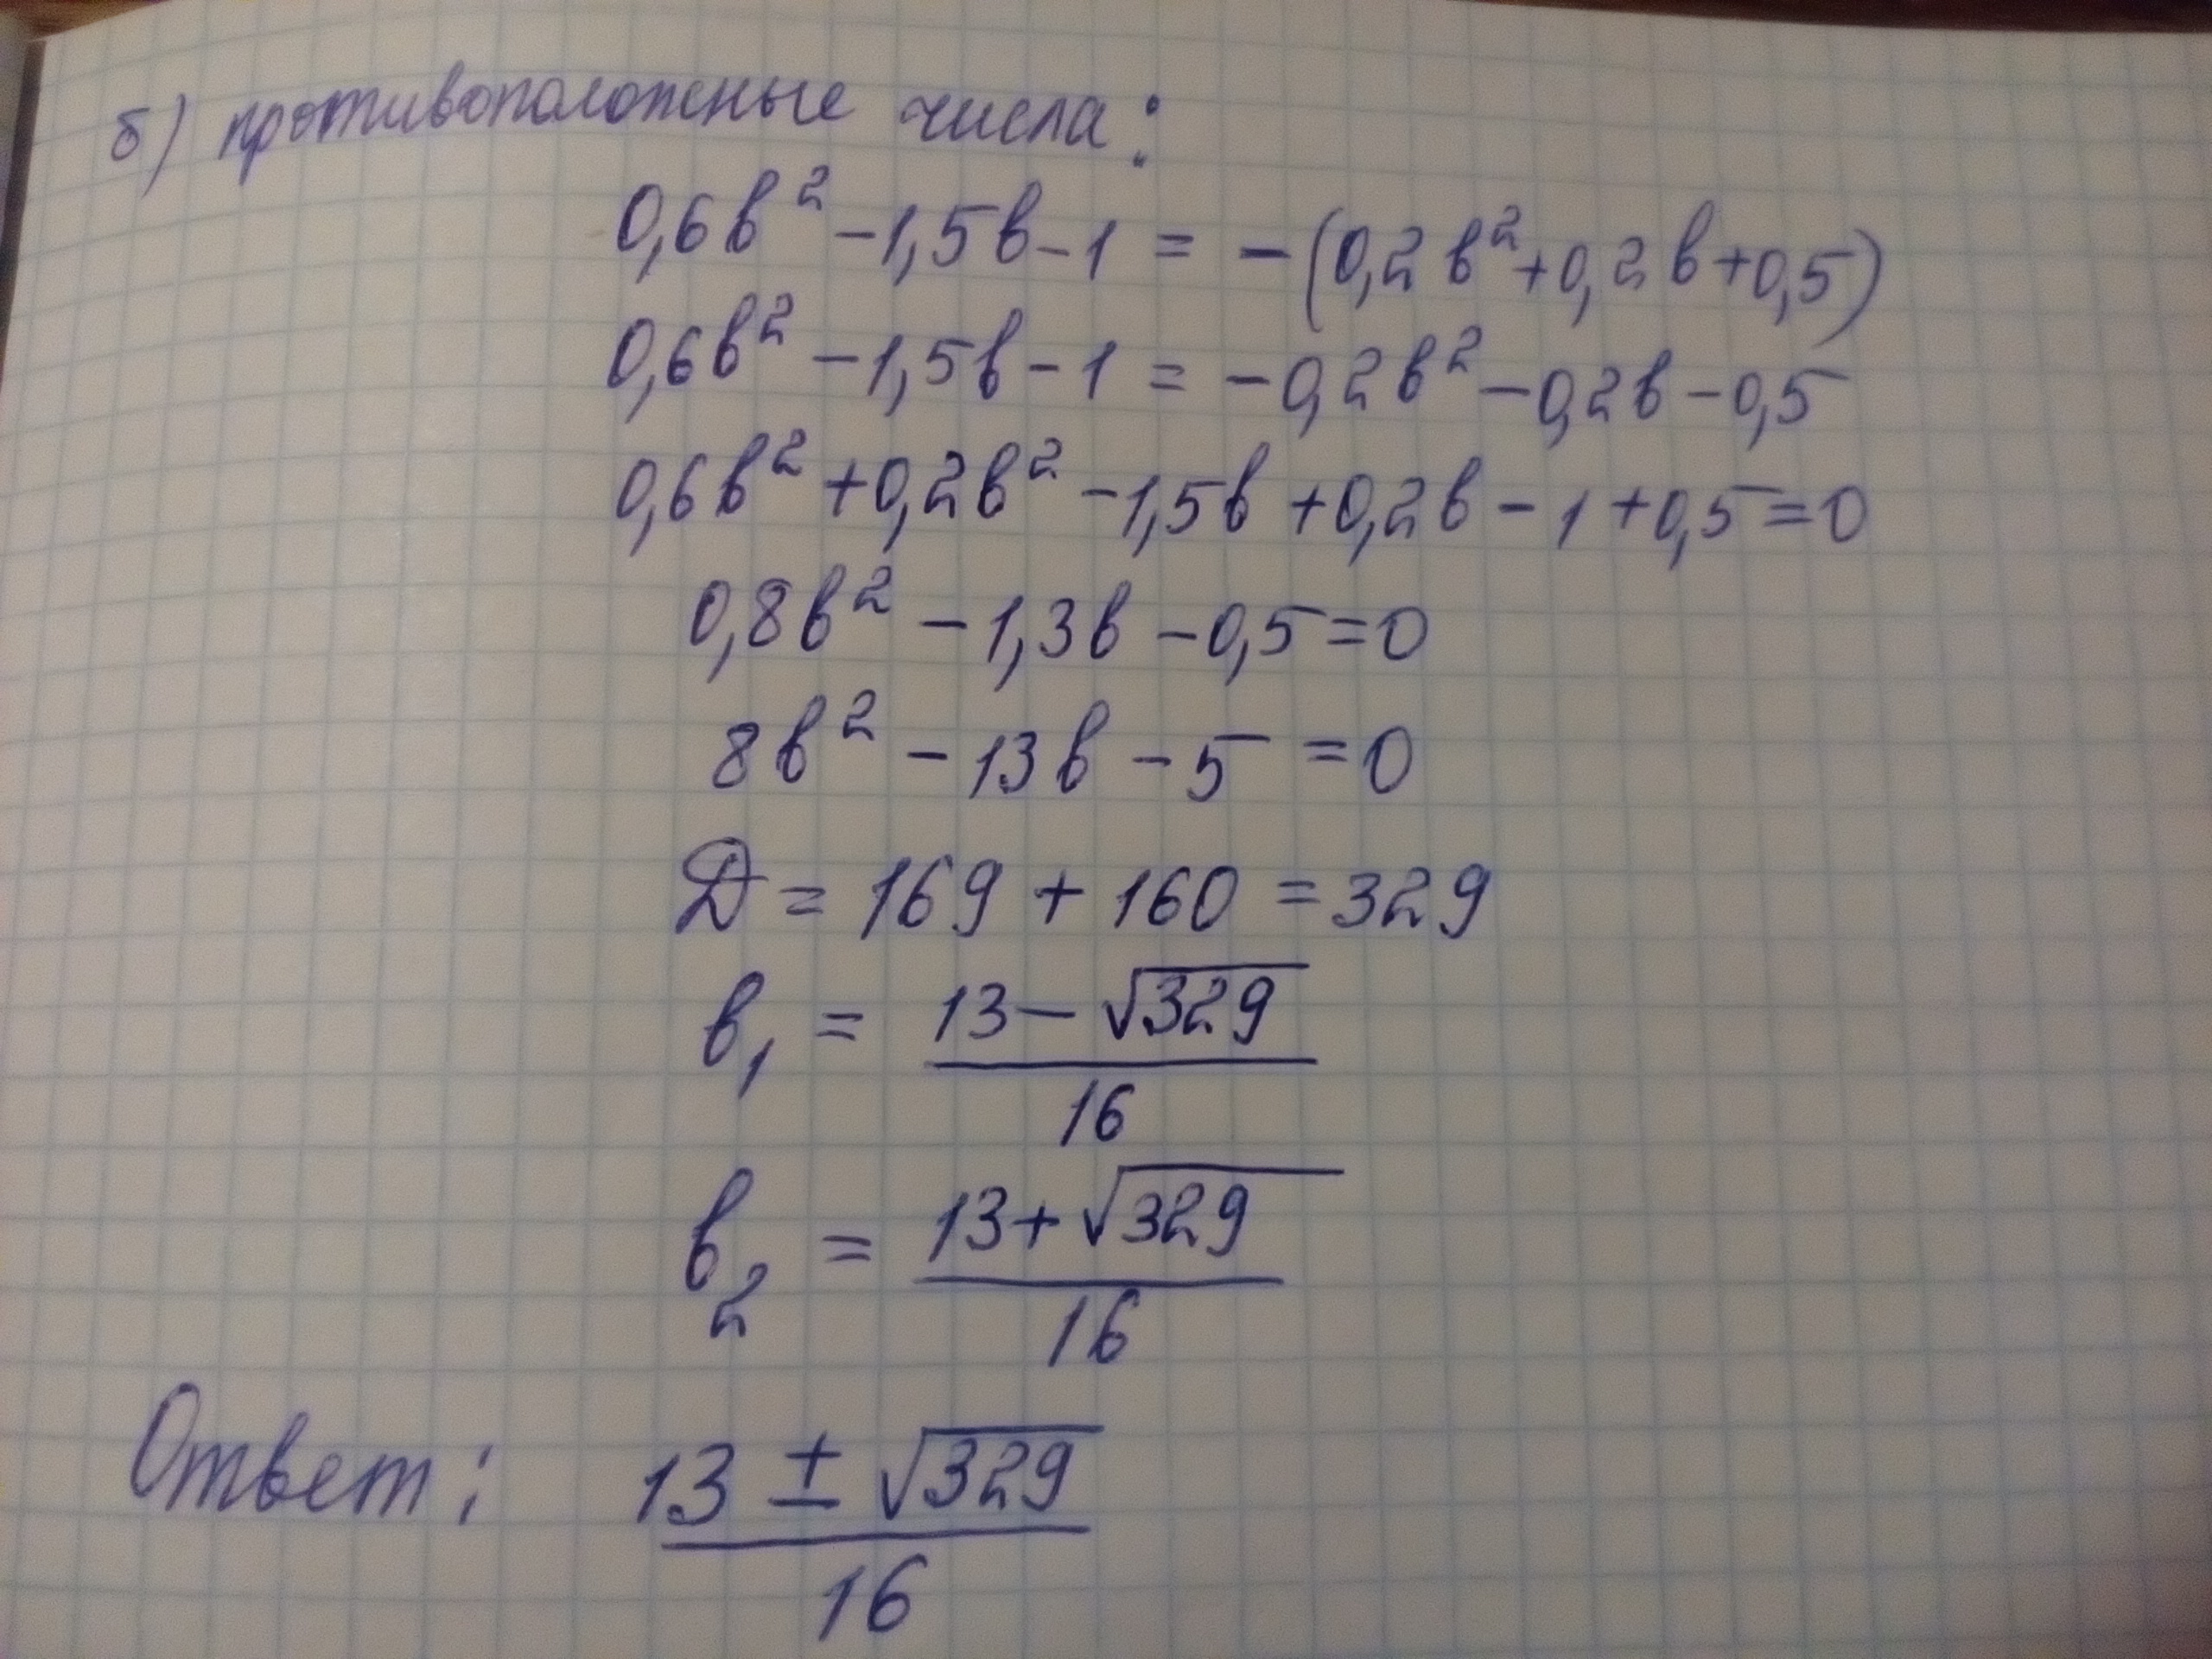 б) противоположные числа:
0,6в² - 1,5в - 1 = - (0,2в² + 0,2в + 0,5)
0,6в² - 1,5в - 1 = - 0,2в² - 0,2в - 0,5
0,6в² + 0,2в² - 1,5в + 0,2в - 1 + 0,5 = 0
0,8в² - 1,3в - 0,5 = 0
8в² - 13в - 5 = 0
Д = 169 + 160 = 329
в₁ = (13 - √329) / 16
в₂ = (13 + √329) / 16
Ответ: (13 ± √329) / 16